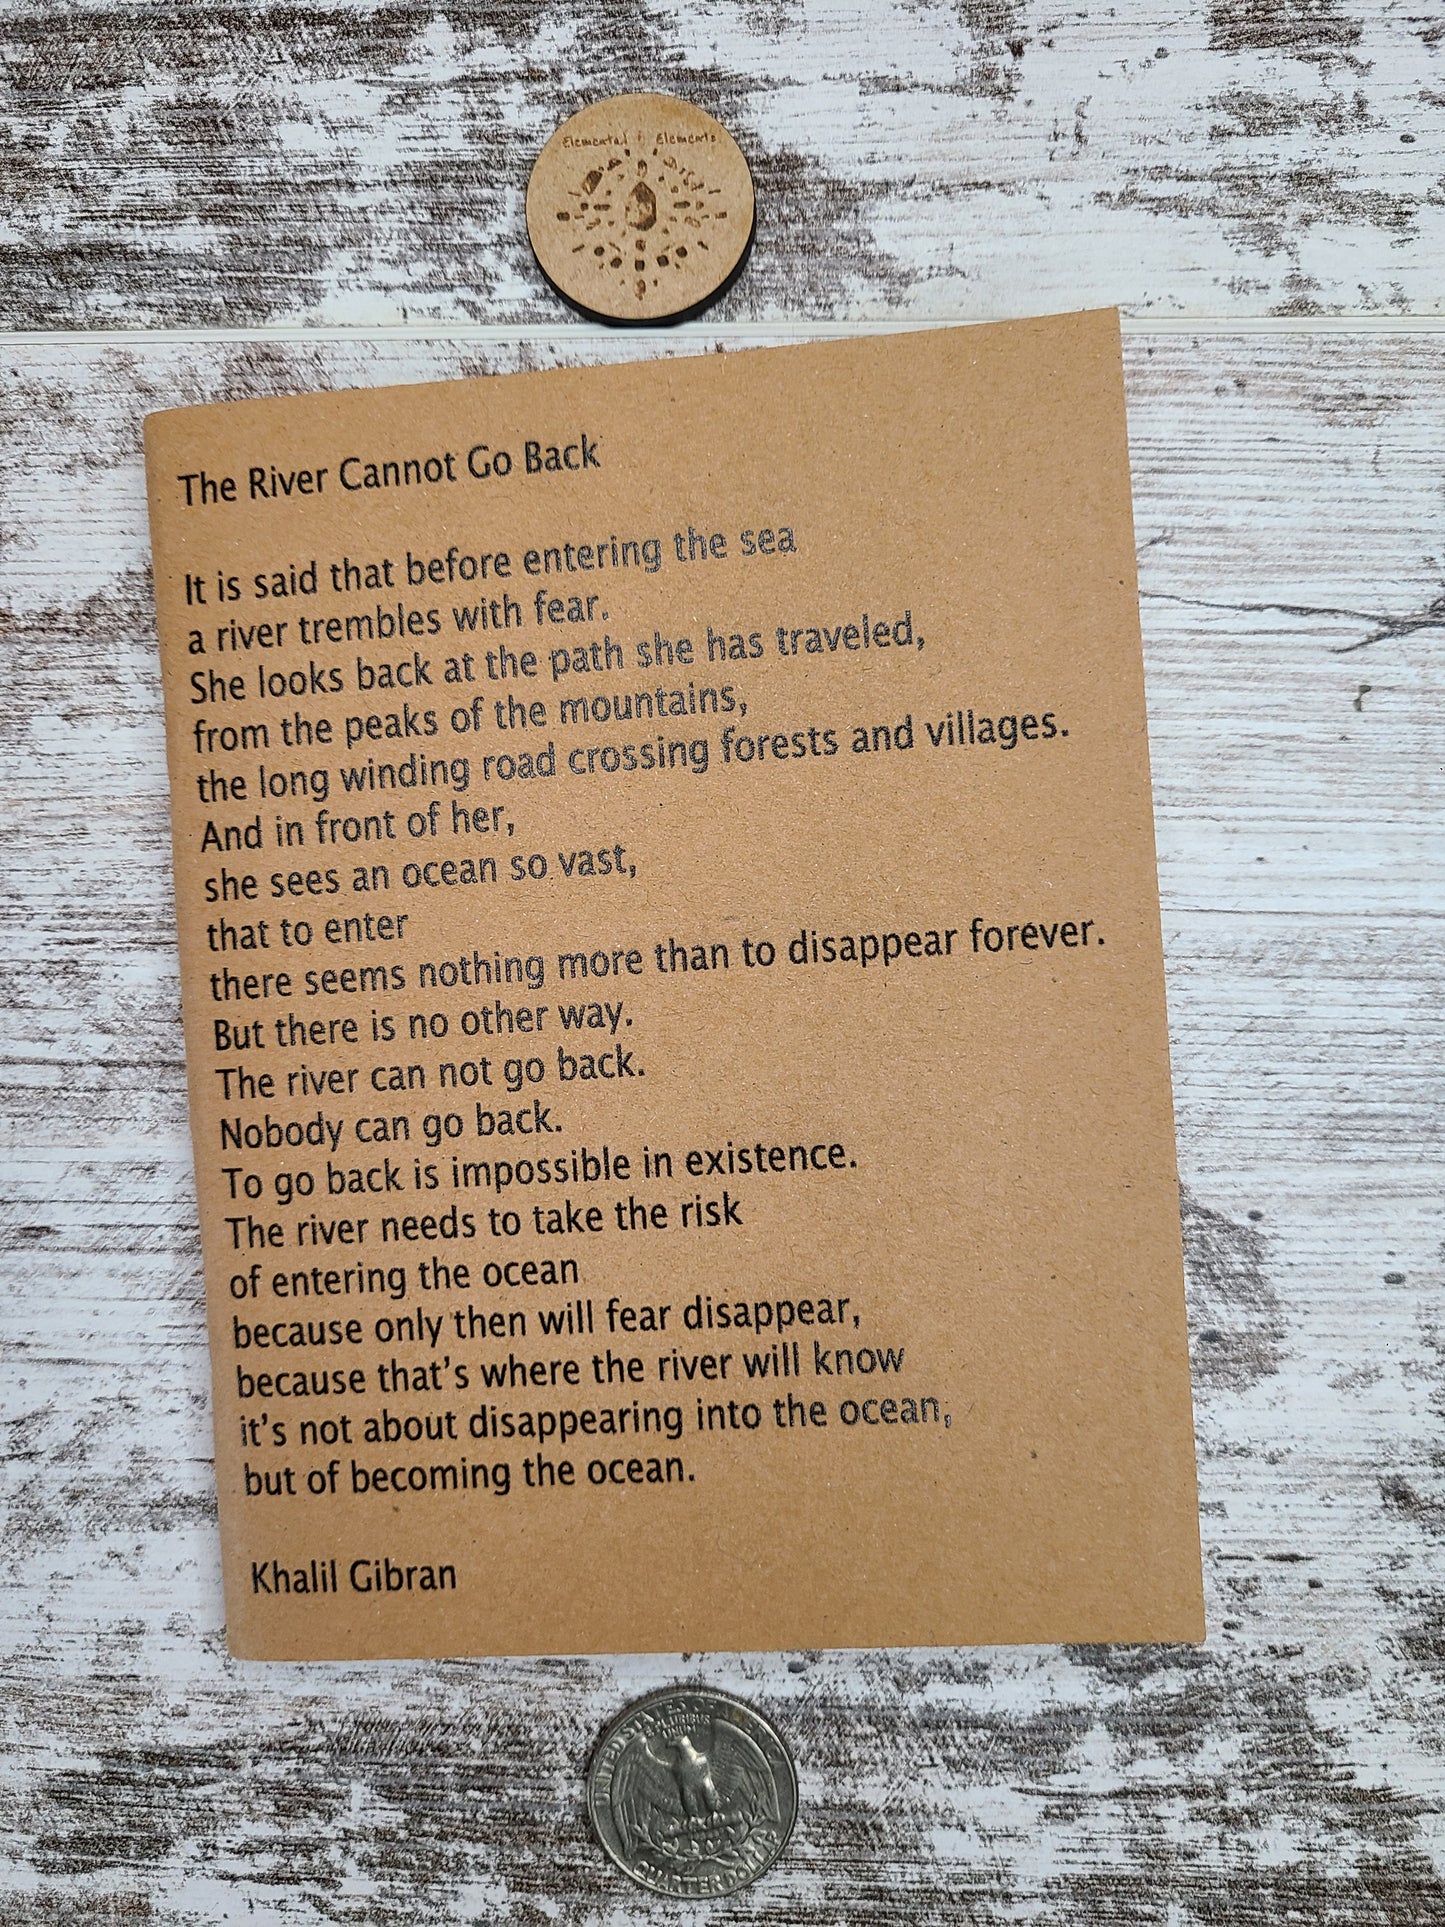 Elemental Elements
The River Cannot Go Back
It is said that before entering the sea
a river trembles with fear.
She looks back at the path she has traveled,
from the peaks of the mountains,
the long winding road crossing forests and villages.
And in front of her,
she sees an ocean so vast,
that to enter
there seems nothing more than to disappear forever.
But there is no other way.
The river can not go back.
Nobody can go back.
To go back is impossible in existence.
The river needs to take the risk
of entering the ocean
because only then will fear disappear,
because that's where the river will know
it's not about disappearing into the ocean,
but of becoming the ocean.
Khalil Gibran
UNITED STATES OF
QUARTER DOLLAR